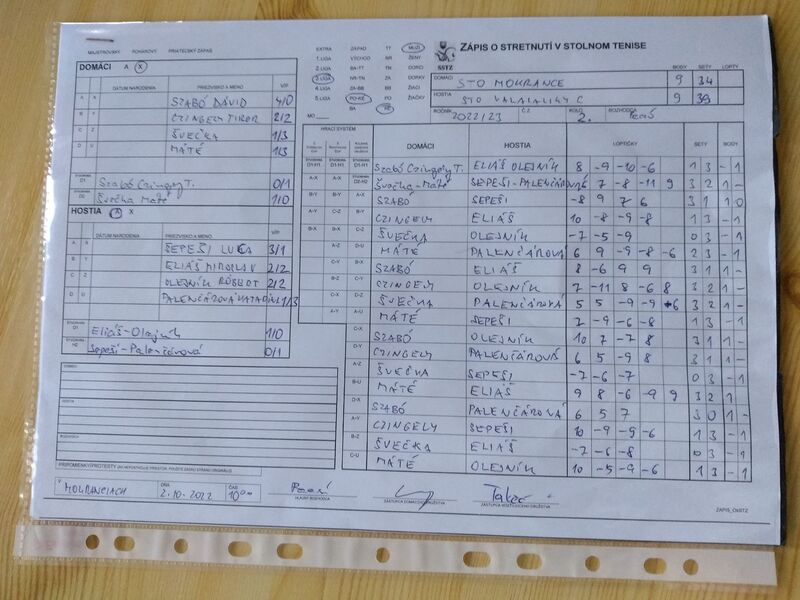 MAJSTROVSKÝ POHÁROVÝ PRIATEĽSKÝ ZÁPAS
DOMÁCI A X
DÁTUM NARODENIA PRIEZVISKO A MENO V/P
A X SZABÓ DÁVID 4/0
B Y CZINGELY TIBOR 2/2
C Z ŠVEČKA 1/3
D U MÁTÉ 1/3
ŠTVORHRA D1 Szabó Czingely T. 0/1
ŠTVORHRA D2 Švečka Máté 1/0
HOSTIA A X
DÁTUM NARODENIA PRIEZVISKO A MENO V/P
ŠEPEŠI 3/1
ELIÁŠ MIROSLAV 2/2
OLEJNÍK RÓBERT 2/2
PALENČÁROVÁ KATARÍNA 1/3
ŠTVORHRA Eliáš-Olejník 1/0
ŠTVORHRA H2 Sepeši-Palenčárová 0/1
DOMÁCI
HOSTIA
ROZHODCA
PRIPOMIENKY/PROTESTY
V MOKRANCIACH DŇA 2.10.2022 ČAS 1000
HLAVNÝ ROZHODCA
ZÁSTUPCA DOMÁCEHO DRUŽSTVA
ZÁSTUPCA HOSŤUJÚCEHO DRUŽSTVA
EXTRA ZÁPAD TT MUŽI
1.LIGA VÝCHOD NR ŽENY
2.LIGA BA-TT TN DORCI
3.LIGA NR-TN ZA DORKY
4.LIGA ZA-BB BB ŽIACI
5.LIGA PO-KE PO ŽIAČKY
MO BA KE
SSTZ
ZÁPIS O STRETNUTÍ V STOLNOM TENISE
BODY SETY LOPTY
DOMÁCI STO MOKRANCE 9 34
HOSTIA STO VALALIKY C 9 39
ROČNÍK 2022/23 Č.Z. KOLO 2. ROZHODCA
HRACÍ SYSTÉM DOMÁCI HOSTIA LOPTIČKY SETY BODY
Szabó Czingely T. ELIÁŠ OLEJNÍK 8 -9 -10 -6 1 3 - 1
Švečka-Máté SEPEŠI-PALENČÁROVÁ 6 7 -8 -11 9 3 2 1 -
SZABÓ SEPEŠI -8 9 7 6 3 1 1 0
CZINGELY ELIÁŠ 10 -8 -9 -8 1 3 - 1
ŠVEČKA OLEJNÍK -7 -5 -9 0 3 - 1
MÁTÉ PALENČÁROVÁ 6 9 -9 -8 -6 2 3 - 1
SZABÓ ELIÁŠ 8 -6 9 9 3 1 1 -
CZINGELY OLEJNÍK 7 -11 8 -6 8 3 2 1 -
ŠVEČKA PALENČÁROVÁ 5 5 -9 -9 6 3 2 1 -
MÁTÉ SEPEŠI 7 -9 -6 -8 1 3 - 1
SZABÓ OLEJNÍK 10 7 -7 8 3 1 1 -
CZINGELY PALENČÁROVÁ 6 5 -9 8 3 1 1 -
ŠVEČKA SEPEŠI -7 -6 -7 0 3 - 1
MÁTÉ ELIÁŠ 9 8 -6 -9 9 3 2 1
SZABÓ PALENČÁROVÁ 6 5 7 3 0 1 -
CZINGELY SEPEŠI 10 -9 -9 -6 1 3 - 1
ŠVEČKA ELIÁŠ -7 -6 -8 0 3 - 1
MÁTÉ OLEJNÍK 10 -5 -9 -6 1 3 - 1
ZÁPIS_OSSTZ